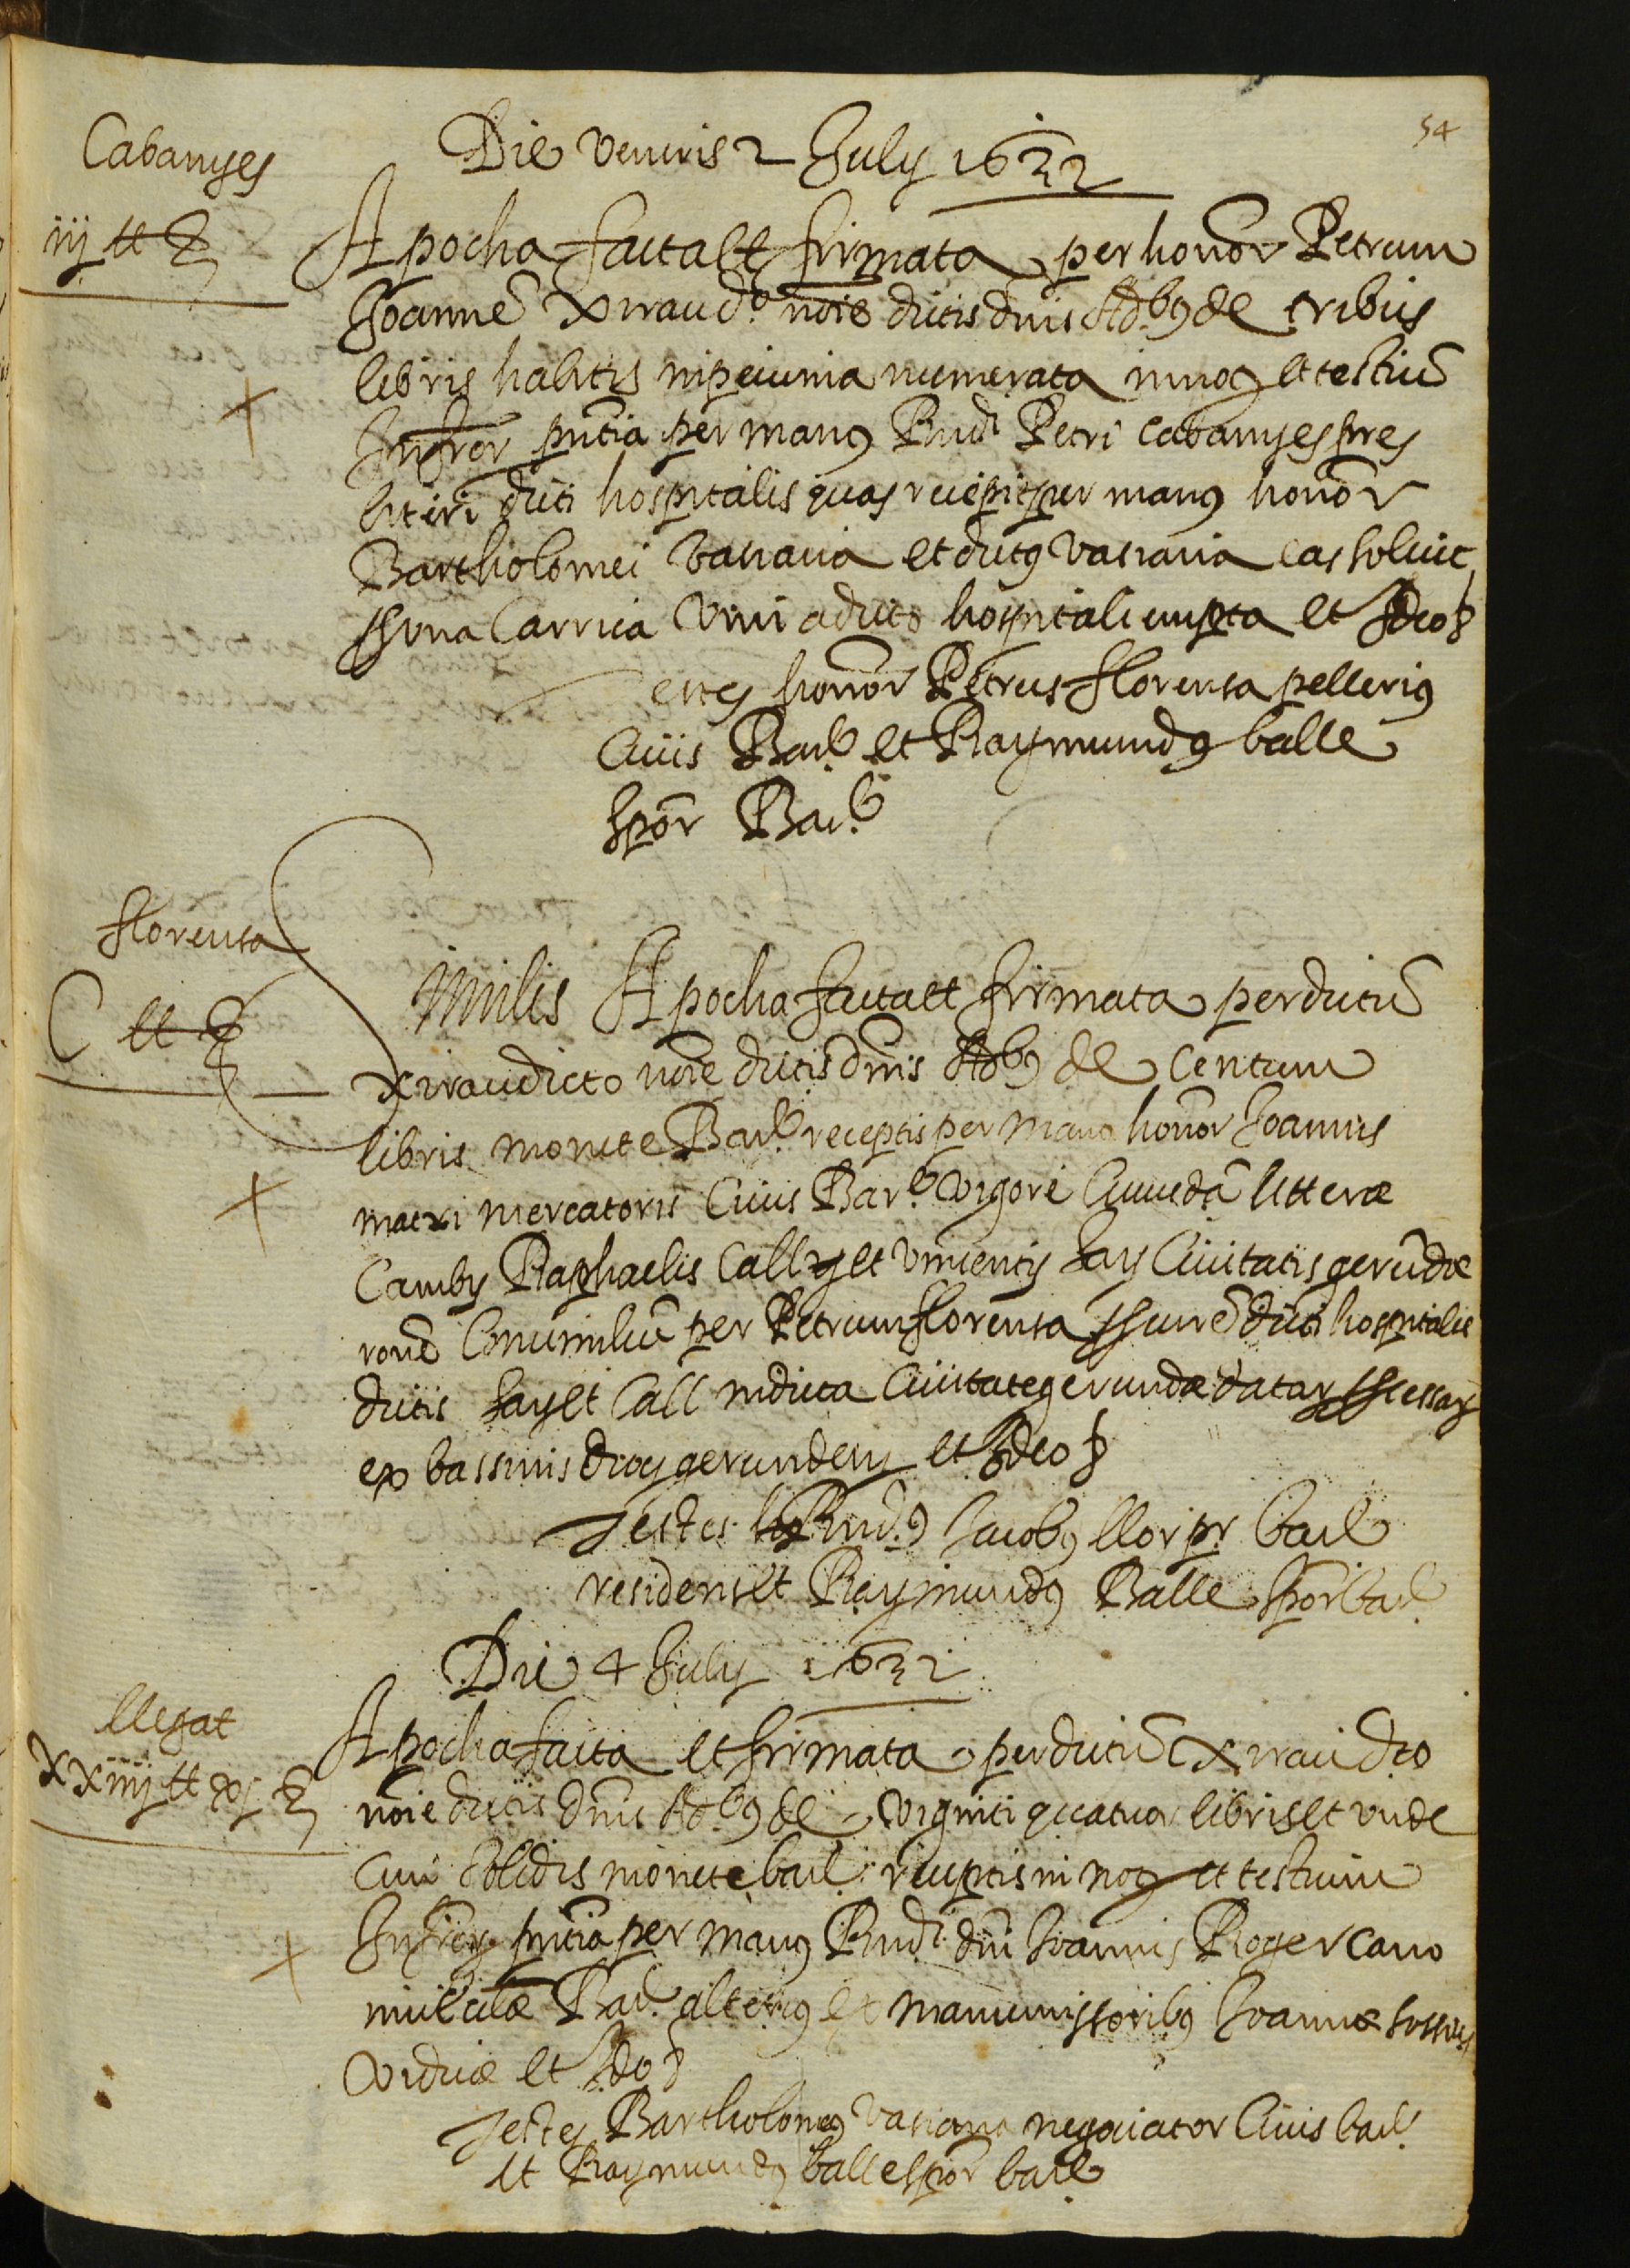 54
Cabanyes
Die veneris 2 July 1632
iij ℔ ß
Apocha facta et firmata per honor Petrum
Joanne Xirau do. noie dictis dnis Adb9 de tribus
libris habitis in pecunia numerata in noȝ et testiu
Infror pntia per man9 Rndi Petri Cabanyes pres
biteri dicti hospitalis quas recepit per man9 honor
Bartholomei vasiana et dict9 vasiana eas solvit
una Carrica vini a dicto hospitali empta et Ideo
honor Petrus florensa pelleri9
Civis Bar. et Raymund9 balle
spor Bar.
florensa
C ℔ ß
Similis Apocha facta et firmata per dictu
Xirau dicto noie dictis dnis Adb9 de Centum
libris monete Bar. receptis per man9 honor Joannis
matxi mercatoris Civis Bar. vigore Cuiusda litteræ
Camby Raphaelis Call et vincentij say Civitatis gerudæ
per Petrum florensa dicti hospitalis
dictis say et Call in dicta Civitate gerundæ
ex bassinis gerunden et Ideo
Testes Rnd.9 Jacob9 llor pr. bar.
residens et Raymund9 Balle spor bar.
Die 4 July 1632
llegat
xxiiij ℔ xj ß
Apocha facta et firmata per dictu Xirau dco
noie dictis dnis Adb9 de viginti quatuor libris et unde
cim solidis monete bar. receptis in noȝ et testium
Infror pntia per man9 Rndi. dni Joannis Roger cano
Bar. alteri9 ex manumissorib9 Joannæ
viduæ et Ideo
Testes Bartholome9 vasiana negociator Civis bar.
et Raymund9 balle spor bar.